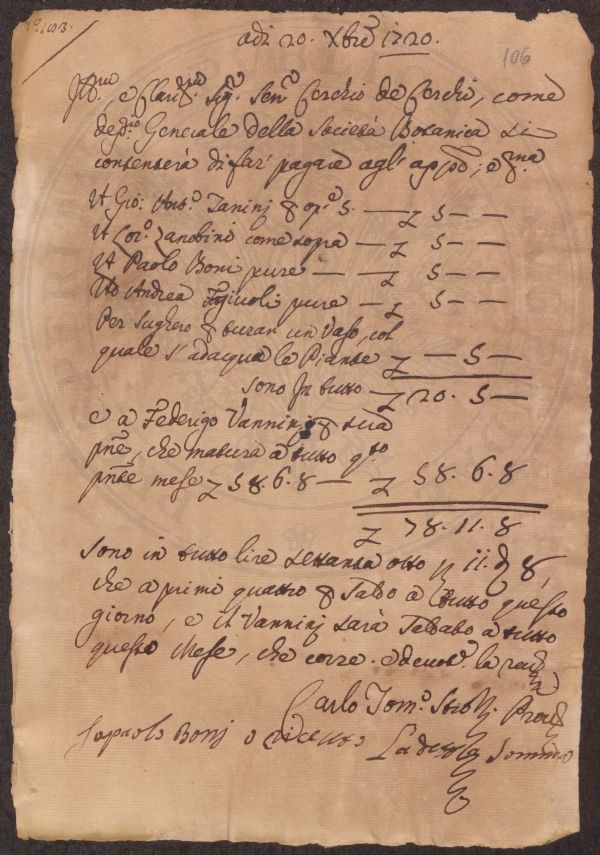 N.° 103.
106
adi 20. Xbre 1720.
Ill.mo, e Clariss.mo Sig.r Sen.e Cerchio de Cerchi, come
Generale della Società Botanica si
contenterà di far' pagare agl' app.o; e
A Gio: Ant.o Tanini p op.e 5. — z 5 — —
A Lor.o Zanobini come sopra — z 5 — —
A Paolo Boni pure — — z 5 — —
Ad Andrea pure — z 5 — —
Per Sughero p turar un Vaso, col
quale s'adacqua le Piante z — 5 —
sono In tutto — z 20. 5 —
e a Federigo Vannini p sua
pne, che matura a tutto q.to
pnte mese z 58. 6. 8 — z 58. 6. 8
z 78. 11. 8
sono in tutto lire settanta otto 11. 8,
che a primi quattro p Saldo a tutto questo
giorno, e il Vannini sarà Saldato a tutto
questo Mese, che corre. e devot.e la
Carlo Tom.o Prov.
Io paolo Bonj o riceuto La detta Somma